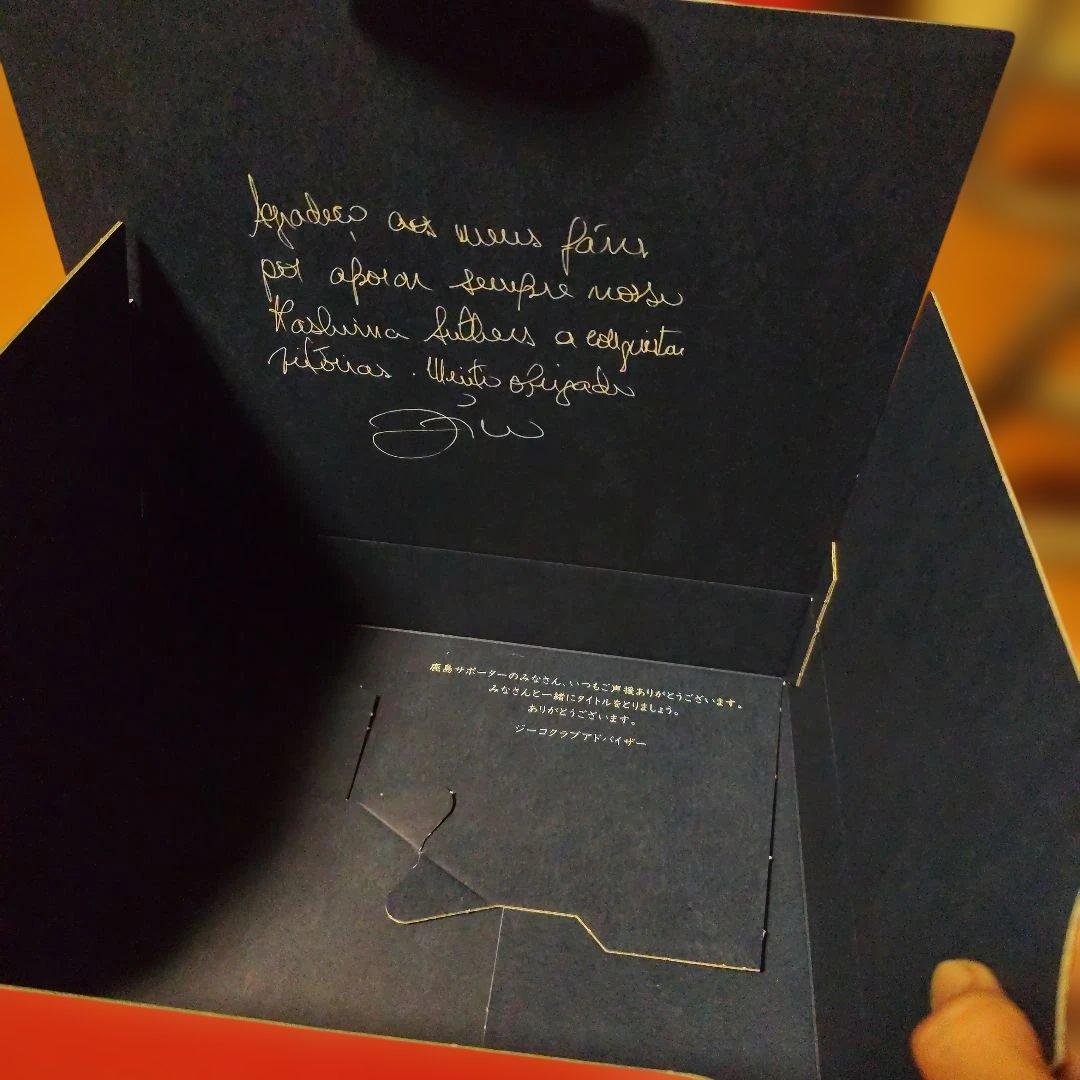 Agradeço aos meus fáns
por apoiar sempre nosso
Kashima Antlers a conquistar
vitórias. Muito obrigado
Zico
鹿島サポーターのみなさん、いつもご声援ありがとうございます。
みなさんと一緒にタイトルをとりましょう。
ありがとうございます。
ジーコクラブアドバイザー